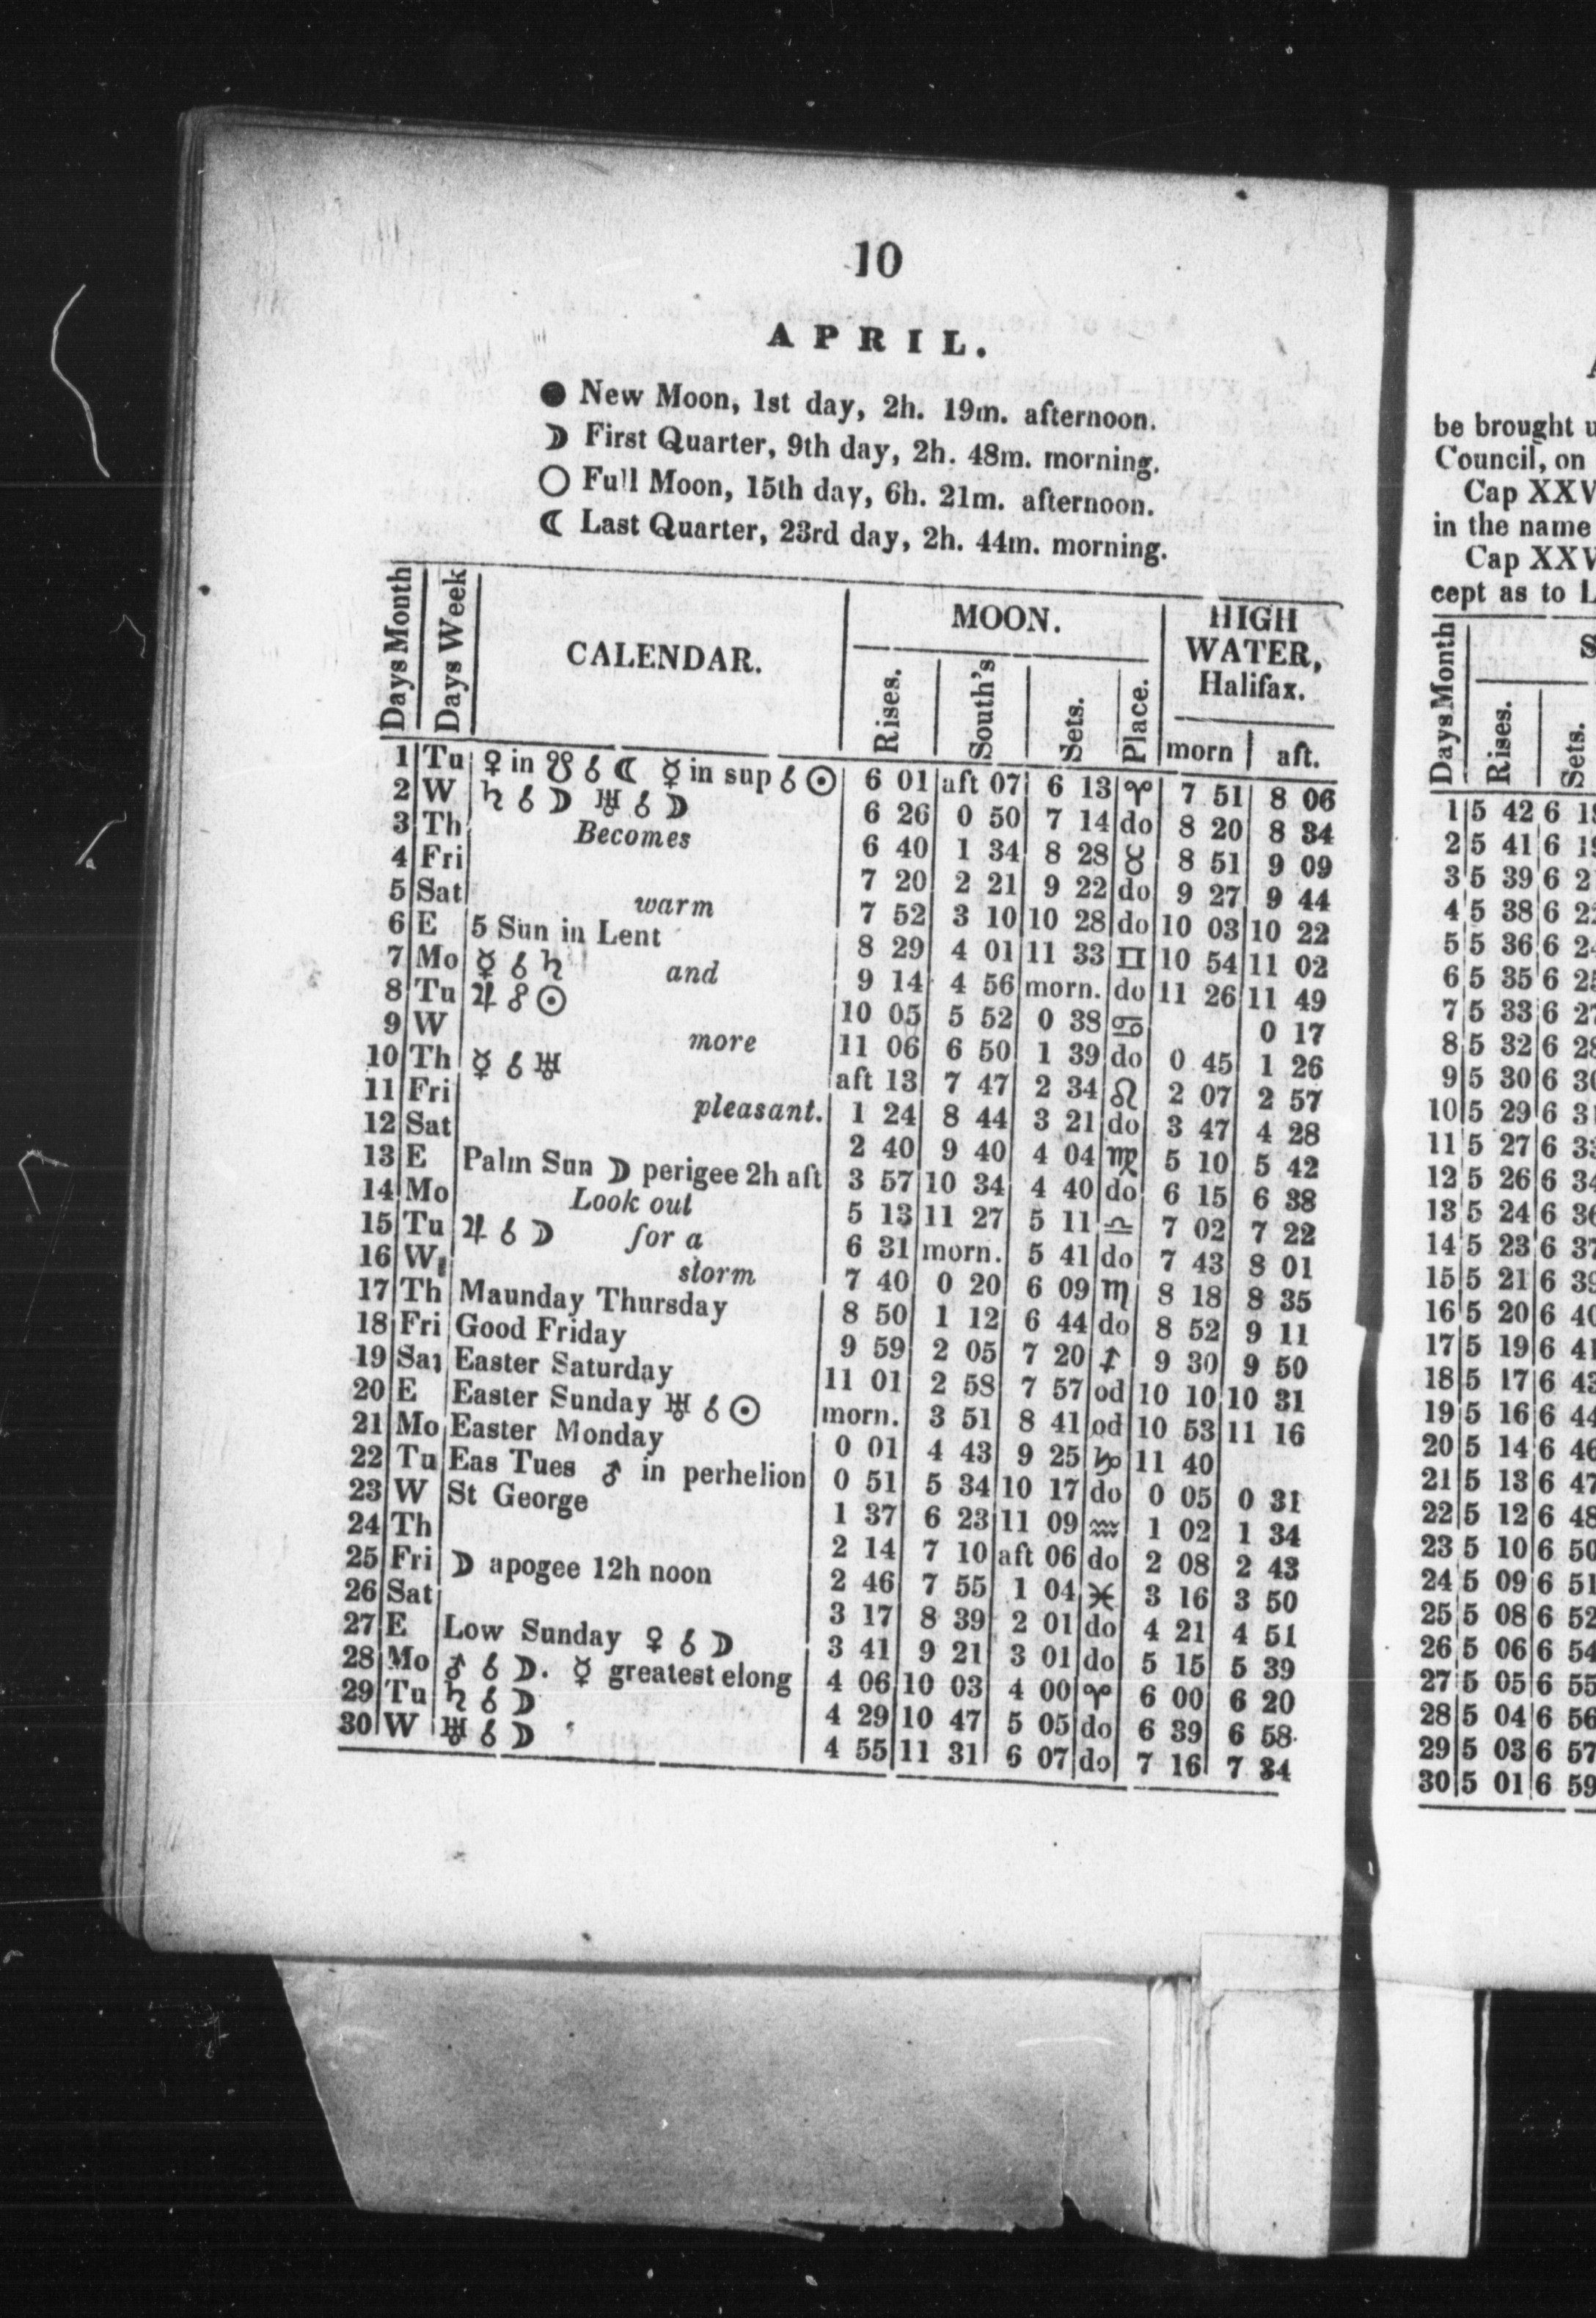 10
APRIL.
● New Moon, 1st day, 2h. 19m. afternoon.
☽ First Quarter, 9th day, 2h. 48m. morning.
○ Full Moon, 15th day, 6h. 21m. afternoon.
☾ Last Quarter, 23rd day, 2h. 44m. morning.
Days Month | Days Week | CALENDAR. | MOON. | HIGH WATER, Halifax.
Rises. | South's | Sets. | Place. | morn | aft.
1 Tu ♀ in ☋ ☌ ☾ ☿ in sup ☌ ☉ 6 01 aft 07 6 13 ♈ 7 51 8 06
2 W ♄ ☌ ☽ ♅ ☌ ☽ 6 26 0 50 7 14 do 8 20 8 34
3 Th Becomes 6 40 1 34 8 28 ♉ 8 51 9 09
4 Fri 7 20 2 21 9 22 do 9 27 9 44
5 Sat warm 7 52 3 10 10 28 do 10 03 10 22
6 E 5 Sun in Lent 8 29 4 01 11 33 ♊ 10 54 11 02
7 Mo ☿ ☌ ♄ and 9 14 4 56 morn. do 11 26 11 49
8 Tu ♃ ☍ ☉ 10 05 5 52 0 38 ♋ 0 17
9 W more 11 06 6 50 1 39 do 0 45 1 26
10 Th ☿ ☌ ♅ aft 13 7 47 2 34 ♌ 2 07 2 57
11 Fri pleasant. 1 24 8 44 3 21 do 3 47 4 28
12 Sat 2 40 9 40 4 04 ♍ 5 10 5 42
13 E Palm Sun ☽ perigee 2h aft 3 57 10 34 4 40 do 6 15 6 38
14 Mo Look out 5 13 11 27 5 11 ♎ 7 02 7 22
15 Tu ♃ ☌ ☽ for a 6 31 morn. 5 41 do 7 43 8 01
16 W storm 7 40 0 20 6 09 ♏ 8 18 8 35
17 Th Maunday Thursday 8 50 1 12 6 44 do 8 52 9 11
18 Fri Good Friday 9 59 2 05 7 20 ♐ 9 30 9 50
19 Sat Easter Saturday 11 01 2 58 7 57 od 10 10 10 31
20 E Easter Sunday ♅ ☌ ☉ morn. 3 51 8 41 od 10 53 11 16
21 Mo Easter Monday 0 01 4 43 9 25 ♑ 11 40
22 Tu Eas Tues ♂ in perhelion 0 51 5 34 10 17 do 0 05 0 31
23 W St George 1 37 6 23 11 09 ♒ 1 02 1 34
24 Th 2 14 7 10 aft 06 do 2 08 2 43
25 Fri ☽ apogee 12h noon 2 46 7 55 1 04 ♓ 3 16 3 50
26 Sat 3 17 8 39 2 01 do 4 21 4 51
27 E Low Sunday ♀ ☌ ☽ 3 41 9 21 3 01 do 5 15 5 39
28 Mo ♂ ☌ ☽. ☿ greatest elong 4 06 10 03 4 00 ♈ 6 00 6 20
29 Tu ♄ ☌ ☽ 4 29 10 47 5 05 do 6 39 6 58
30 W ♅ ☌ ☽ 4 55 11 31 6 07 do 7 16 7 34
be brought
Council, on
Cap
in the name
Cap
cept as to
Days Month
Rises. | Sets.
1 5 42 6
2 5 41 6
3 5 39 6
4 5 38 6
5 5 36 6
6 5 35 6
7 5 33 6
8 5 32 6
9 5 30 6
10 5 29 6
11 5 27 6
12 5 26 6
13 5 24 6
14 5 23 6
15 5 21 6
16 5 20 6
17 5 19 6
18 5 17 6
19 5 16 6
20 5 14 6
21 5 13 6 47
22 5 12 6 48
23 5 10 6 50
24 5 09 6 51
25 5 08 6 52
26 5 06 6 54
27 5 05 6 55
28 5 04 6 56
29 5 03 6 57
30 5 01 6 59